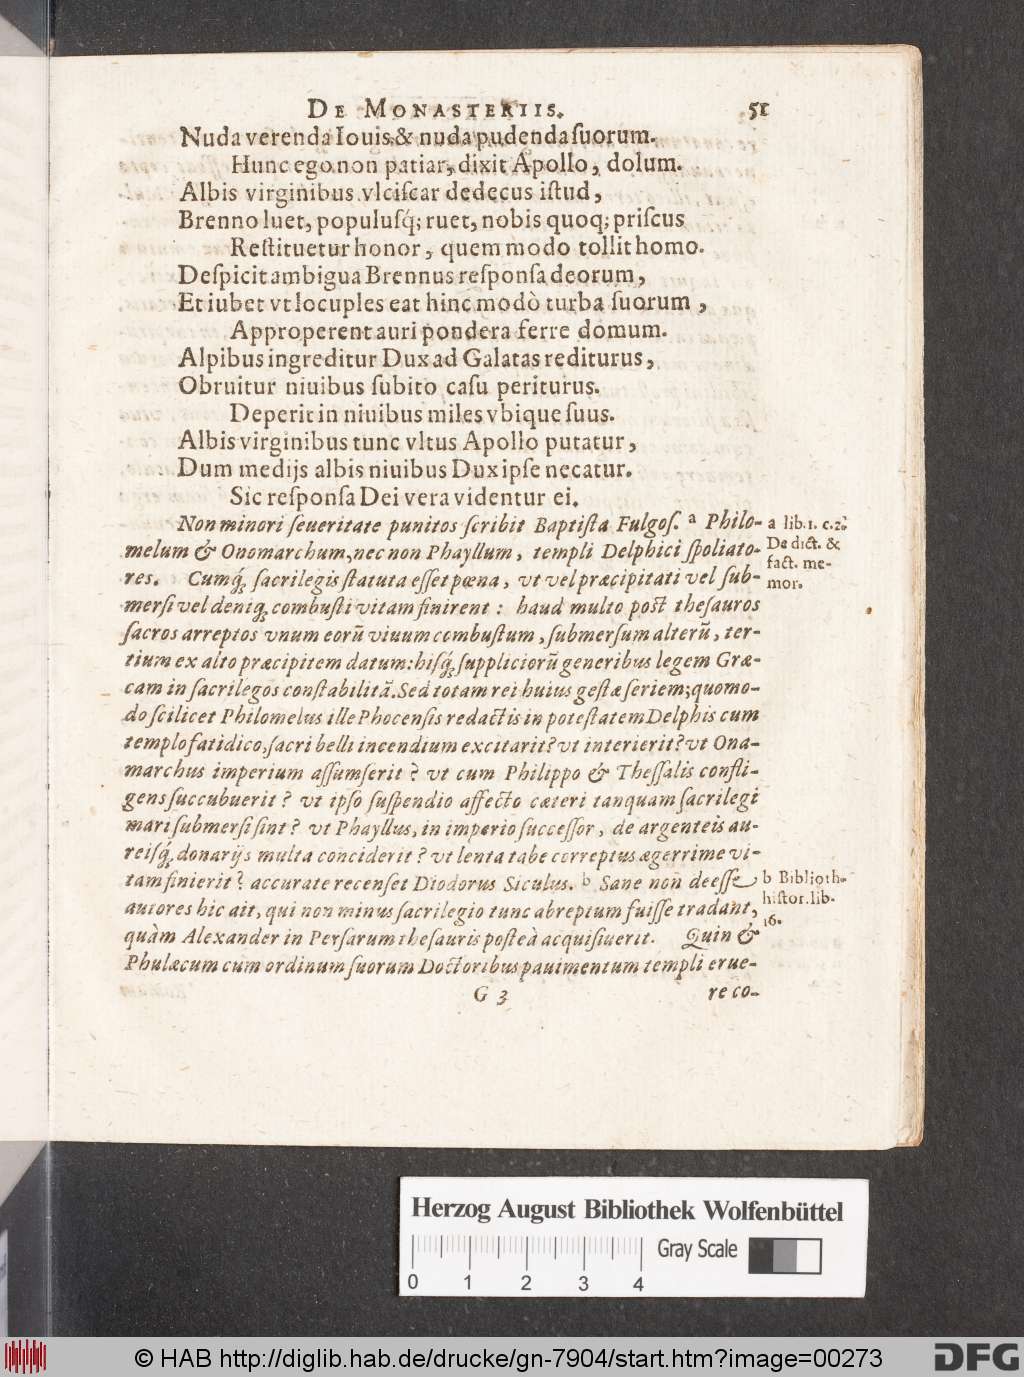 DE MONASTERIIS. 51
Nuda verenda Iouis & nuda pudenda ſuorum.
Hunc ego non patiar, dixit Apollo, dolum.
Albis virginibus vlciſcar dedecus iſtud,
Brenno luet, populuſq́; ruet, nobis quoq; priſcus
Reſtituetur honor, quem modo tollit homo.
Deſpicit ambigua Brennus reſponſa deorum,
Et iubet vt locuples eat hinc modò turba ſuorum,
Approperent auri pondera ferre domum.
Alpibus ingreditur Dux ad Galatas rediturus,
Obruitur niuibus ſubito caſu periturus.
Deperit in niuibus miles vbique ſuus.
Albis virginibus tunc vltus Apollo putatur,
Dum medijs albis niuibus Dux ipſe necatur.
Sic reſponſa Dei vera videntur ei.
Non minori ſeueritate punitos ſcribit Baptiſta Fulgoſ. a Philo-
melum & Onomarchum, nec non Phayllum, templi Delphici ſpoliato-
res. Cumq́; ſacrilegis ſtatuta eſſet pœna, vt vel præcipitati vel ſub-
merſi vel deniq; combuſti vitam finirent : haud multo poſt theſauros
ſacros arreptos vnum eorũ viuum combuſtum, ſubmerſum alterũ, ter-
tium ex alto præcipitem datum: hiſq́; ſuppliciorũ generibus legem Græ-
cam in ſacrilegos conſtabilitã. Sed totam rei huius geſtæ ſeriem; quomo-
do ſcilicet Philomelus ille Phocenſis redactis in poteſtatem Delphis cum
templo fatidico, ſacri belli incendium excitarit? vt interierit? vt Ona-
marchus imperium aſſumſerit ? vt cum Philippo & Theſſalis confli-
gens ſuccubuerit ? vt ipſo ſuſpendio affecto cæteri tanquam ſacrilegi
mari ſubmerſi ſint ? vt Phayllus, in imperio ſucceſſor, de argenteis au-
reiſq́; donarijs multa conciderit ? vt lenta tabe correptus ægerrime vi-
tam finierit ? accurate recenſet Diodorus Siculus. b Sane non deeſſe
autores hic ait, qui non minus ſacrilegio tunc abreptum fuiſſe tradant,
quàm Alexander in Perſarum theſauris poſteà acquiſiuerit. Quin &
Phulæcum cum ordinum ſuorum Doctoribus pauimentum templi erue-
G 3 re co-
a lib. 1. c. 2.
De dict. &
fact. me-
mor.
b Biblioth.
hiſtor. lib.
16.
Herzog August Bibliothek Wolfenbüttel
Gray Scale
0 1 2 3 4
© HAB http://diglib.hab.de/drucke/gn-7904/start.htm?image=00273
DFG